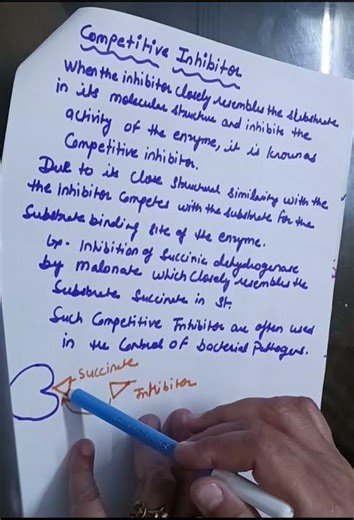 Competitive Inhibitor
When the inhibitor closely resembles the substrate
in its molecular structure and inhibits the
activity of the enzyme, it is known as
Competitive inhibitor.
Due to its close structural similarity with the
the inhibitor competes with the substrate for the
Substrate binding site of the enzyme.
Inhibition of Succinic dehydrogenase
by malonate which closely resembles the
Substrate Succinate in St.
Such Competitive Inhibitor are often used
in the Control of bacterial Pathogens.
Succinate
Inhibitor